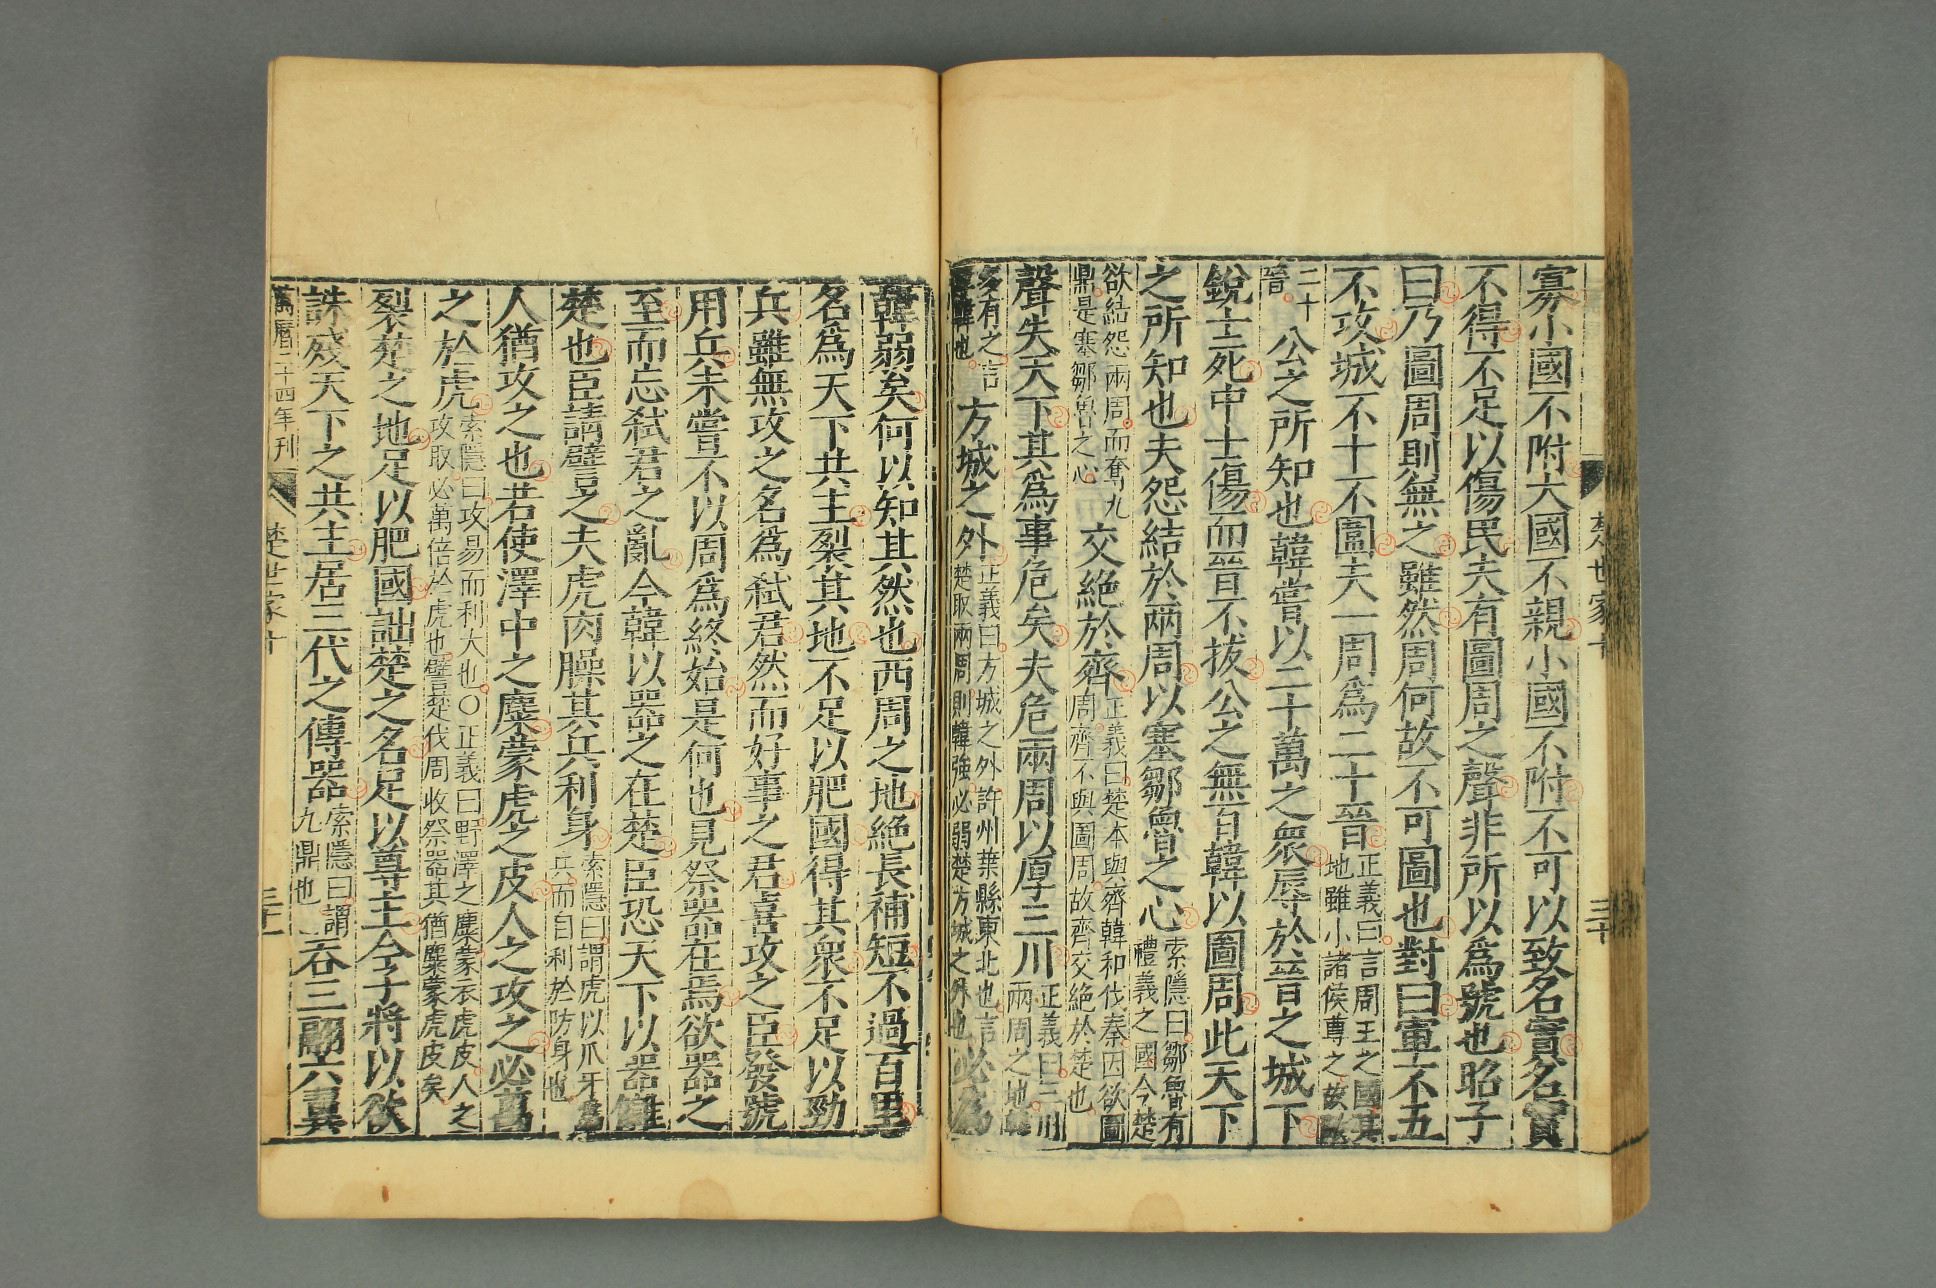 楚世家十 三十
寡小國不附大國不親小國不附不可以致名實名實
不得不足以傷民夫有圖周之聲非所以爲號也昭子
曰乃圖周則無之雖然周何故不可圖也對曰軍不五
不攻城不十不圍夫一周爲二十晉正義曰言周王之國其
地雖小諸侯尊之故敵
二十
晉公之所知也韓嘗以二十萬之衆辱於晉之城下
銳士死中士傷而晉不拔公之無百韓以圖周此天下
之所知也夫怨結於兩周以塞鄒魯之心索隱曰鄒魯有
禮義之國今楚
欲結怨兩周而奪九
鼎是塞鄒魯之心交絶於齊正義曰楚本與齊韓和伐秦因欲圖
周齊不與圖周故齊交絶於楚也
聲失天下其爲事危矣夫危兩周以厚三川正義曰三川
兩周之地韓
多有之言
厚韓也方城之外正義曰方城之外許州葉縣東北也言
楚取兩周則韓強必弱楚方城之外也必爲
韓弱矣何以知其然也西周之地絶長補短不過百里
名爲天下共主裂其地不足以肥國得其衆不足以勁
兵雖無攻之名爲弑君然而好事之君喜攻之臣發號
用兵未嘗不以周爲終始是何也見祭器在焉欲器之
至而忘弑君之亂今韓以器之在楚臣恐天下以器讎
楚也臣請譬之夫虎肉臊其兵利身索隱曰謂虎以爪牙爲
兵而自利於防身也
人猶攻之也若使澤中之麋蒙虎之皮人之攻之必萬
之於虎索隱曰攻易而利大也○正義曰野澤之麋蒙衣虎皮人之
攻取必萬倍於虎也譬楚伐周收祭器其猶麋蒙虎皮矣
裂楚之地足以肥國詘楚之名足以尊主今子將以欲
誅殘天下之共主居三代之傳器索隱曰謂
九鼎也吞三翮六翼
萬曆二十四年刊 楚世家十 三十一